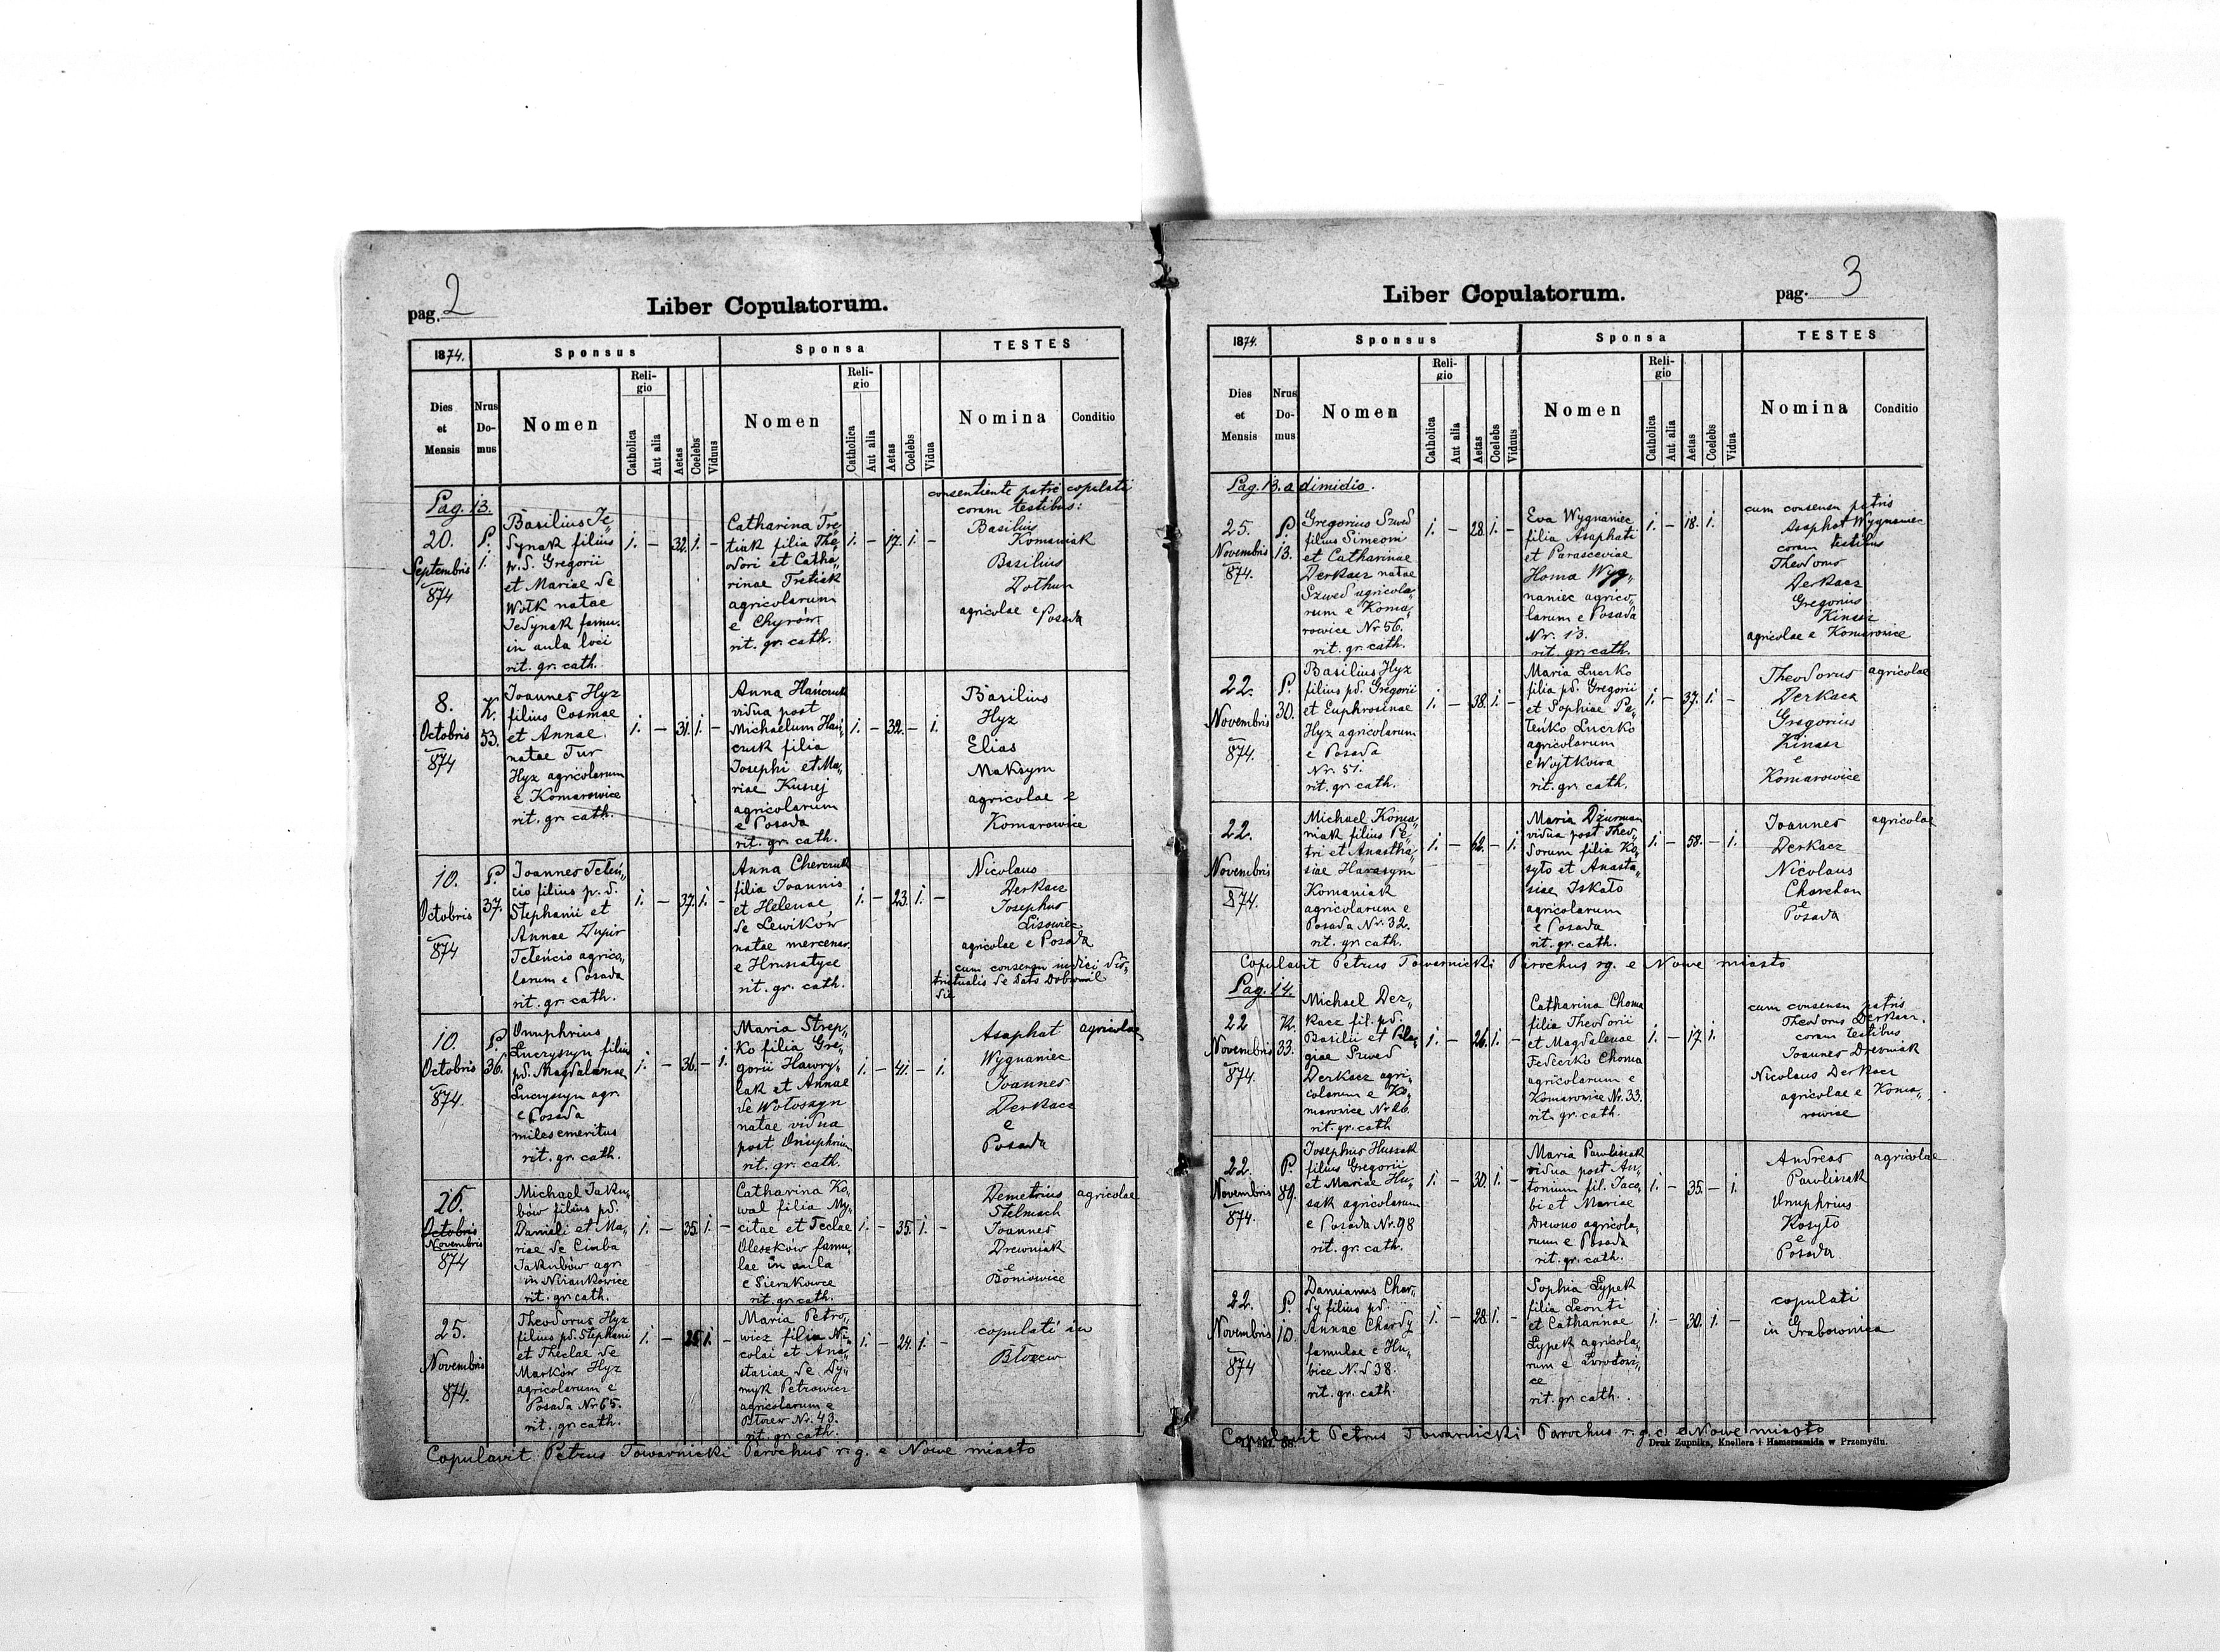 pag. 2
Liber Copulatorum.
1874.
Sponsus
Sponsa
TESTES
Dies et Mensis
Nrus Do-mus
Nomen
Reli-gio
Catholica
Aut alia
Aetas
Coelebs
Viduus
Nomen
Reli-gio
Catholica
Aut alia
Aetas
Coelebs
Vidua
Nomina
Conditio
Pag. 13.
20.
Septembris
874
P.
1.
Basilius Je„
dynak filius
p.d. Gregorii
et Mariae de
Wołk natae
Jedynak famu.
in aula loci
rit. gr. cath.
1. — 32. 1. —
Catharina Tre„
tiak filia The„
odori et Catha„
rinae Tretiak
agricolarum
e Chyrów
rit. gr. cath.
1. — 17. 1. —
consentiente patre copulati
coram testibus:
Basilius
Komaniak
Basilius
Dothun
agricolae e Posada
8.
Octobris
874
K.
53.
Joannes Hyz
filius Cosmae
et Annae
natae Tur
Hyz agricolarum
e Komarowice
rit. gr. cath.
1. — 31. 1. —
Anna Hańczuk
vidua post
Michaelum Hań„
czuk filia
Josephi et Ma„
riae Kusej
agricolarum
e Posada
rit. gr. cath.
1. — 32. — 1.
Basilius
Hyz
Elias
Maksym
agricolae e
Komarowice
10.
Octobris
874
P.
37.
Joannes Teteń„
cio filius p.d.
Stephanii et
Annae Dupir
Teteńcio agrico„
larum e Posada
rit. gr. cath.
1. — 37. 1. —
Anna Cherczuk
filia Joannis
et Helenae
de Lewików
natae mercenar.
e Hrusatyce
rit. gr. cath.
1. — 23. 1. —
Nicolaus
Derkacz
Josephus
Lisowiec
agricolae e Posada
cum consensu iudici dis„
trictualis de dato Dobromil
die
10.
Octobris
874.
P.
36.
Onuphrius
Luczyszyn filius
pd. Magdalenae
Luczyszyn agr.
e Posada
miles emeritus
rit. gr. cath.
1. — 36. — 1.
Maria Strep„
ko filia Gre„
gorii Hawry„
lak et Annae
de Wołoszyn
natae vidua
post Onuphrium
rit. gr. cath.
1. — 41. — 1.
Asaphat
Wygnaniec
Joannes
Derkacz
e
Posada
agricolae
25.
Octobris
Novembris
874
Michael Jaku„
bów filius pd.
Danieli et Ma„
riae de Cimba
Jakubów agr.
in Niżankowice
rit. gr. cath.
1. — 35. 1. —
Catharina Ko„
wal filia My„
citae et Teclae
Oleszków famu„
lae in aula
e Sierakowce
rit. gr. cath.
1. — 35. 1. —
Demetrius
Stelmach
Joannes
Drewniak
e
Boniowice
agricolae
25.
Novembris
874.
Theodorus Hyz
filius pd. Stephani
et Theclae de
Marków Hyz
agricolarum e
Posada Nr 65.
rit. gr. cath.
1. — 25. 1. —
Maria Petro„
wicz filia Ni„
colai et Ana„
stasiae de Dy„
myk Petrowicz
agricolarum e
Błozew Nr. 43.
rit. gr. cath.
1. — 24. 1. —
copulati in
Błozew
Copulavit Petrus Towarnicki Parochus r. g. e Nowe miasto
Liber Copulatorum.
pag. 3
1874.
Sponsus
Sponsa
TESTES
Dies et Mensis
Nrus Do-mus
Nomen
Reli-gio
Catholica
Aut alia
Aetas
Coelebs
Viduus
Nomen
Reli-gio
Catholica
Aut alia
Aetas
Coelebs
Vidua
Nomina
Conditio
Pag. 13. a dimidio.
25.
Novembris
874.
P.
13.
Gregorius Szwed
filius Simeoni
et Catharinae
Derkacz natae
Szwed agricola„
rum e Koma„
rowice Nr 56.
rit. gr. cath.
1. — 28. 1. —
Eva Wygnaniec
filia Asaphati
et Parasceviae
Homa Wyg„
naniec agrico„
larum e Posada
Nr. 13.
rit. gr. cath.
1. — 18. 1.
cum consensu patris
Asaphat Wygnaniec
coram testibus
Theodorus
Derkacz
Gregorius
Kinasz
agricolae e Komarowice
22.
Novembris
874.
P.
30.
Basilius Hyz
filius pd. Gregorii
et Euphrosinae
Hyz agricolarum
e Posada
Nr. 51.
rit. gr. cath.
1. — 38. 1. —
Maria Luczko
filia pd. Gregorii
et Sophiae Pa„
teńko Luczko
agricolarum
e Wojtkowa
rit. gr. cath.
1. — 37. 1. —
Theodorus
Derkacz
Gregorius
Kinasz
e
Komarowice
agricolae
22.
Novembris
874.
Michael Koma„
niak filius Pe„
tri et Anastha„
siae Harasym
Komaniak
agricolarum e
Posada Nr. 32.
rit. gr. cath.
1. — 62. — 1.
Maria Dżurman
vidua post Theo„
dorum filia Ko„
syto et Anasta„
siae Iskato
agricolarum
e Posada
rit. gr. cath.
1. — 58. — 1.
Joannes
Derkacz
Nicolaus
Charchan
e
Posada
agricolae
Copulavit Petrus Towarnicki Parochus rg. e Nowe miasto
Pag. 14.
22
Novembris
874.
K.
33.
Michael Der„
kacz fil. pd.
Basilii et Pela„
giae Szwed
Derkacz agri„
colarum e Ko„
marowice Nr 26.
rit. gr. cath
1. — 26. 1. —
Catharina Choma
filia Theodorii
et Magdalenae
Fedeczko Choma
agricolarum e
Komarowice Nr. 33.
rit. gr. cath.
1. — 17. 1.
cum consensu patris
Theodorus Derkacz.
coram testibus
Joannes Drewniak
Nicolaus Derkacz
agricolae e Koma„
rowice
22.
Novembris
874.
P.
89.
Josephus Hussak
filius Gregorii
et Mariae Hu„
sak agricolarum
e Posada Nr. 98
rit. gr. cath.
1. — 30. 1. —
Maria Pawlisiak
vidua post An„
tonium fil. Jaco„
bi et Mariae
Drewno agricola„
rum e Posada
rit. gr. cath.
1. — 35. — 1.
Andreas
Pawlisiak
Onuphrius
Kosyto
e
Posada
agricolae
22.
Novembris
874
P.
10.
Damianus Char„
dy filius pd.
Annae Chardy
famulae e Hu„
bice N. d 38.
rit. gr. cath.
1. — 28. 1. —
Sophia Łypek
filia Leonti
et Catharinae
Łypek agricola„
rum e
ce
rit. gr. cath.
1. — 30. 1. —
copulati
in Grabownica
Copulavit Petrus Towarnicki Parochus r. g. c. e Nowe miasto
Druk Zupnika, Knellera i Hamerszmida w Przemyślu.